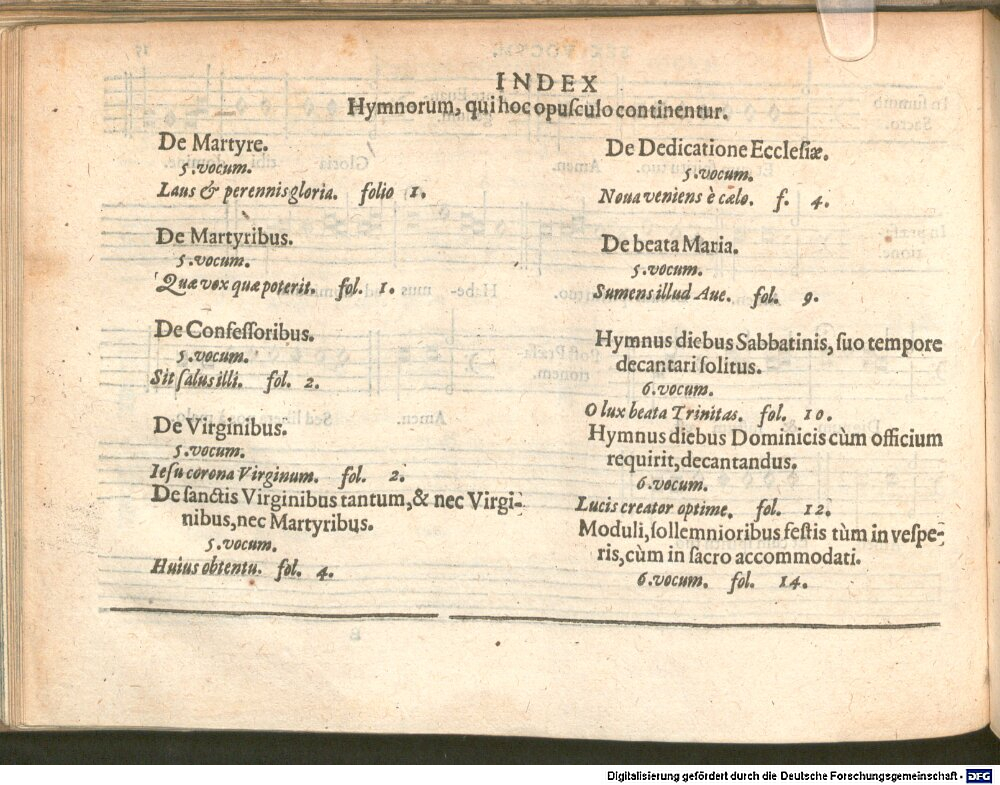 INDEX
Hymnorum, qui hoc opusculo continentur.
De Martyre.
5.vocum.
Laus & perennis gloria. folio 1.
De Martyribus.
5.vocum.
Quæ vox quæ poterit. fol. 1.
De Confeſſoribus.
5.vocum.
Sit ſalus illi. fol. 2.
De Virginibus.
5.vocum.
Ieſu corona Virginum. fol. 2.
De ſanctis Virginibus tantum, & nec Virgi-
nibus, nec Martyribus.
5.vocum.
Huius obtentu. fol. 4.
De Dedicatione Eccleſiæ.
5.vocum.
Noua veniens è cælo. f. 4.
De beata Maria.
5.vocum.
Sumens illud Aue. fol. 9.
Hymnus diebus Sabbatinis, ſuo tempore
decantari ſolitus.
6.vocum.
O lux beata Trinitas. fol. 10.
Hymnus diebus Dominicis cùm officium
requirit, decantandus.
6.vocum.
Lucis creator optime. fol. 12.
Moduli, ſollemnioribus feſtis tùm in veſpe-
ris, cùm in ſacro accommodati.
6.vocum. fol. 14.
Digitalisierung gefördert durch die Deutsche Forschungsgemeinschaft - DFG